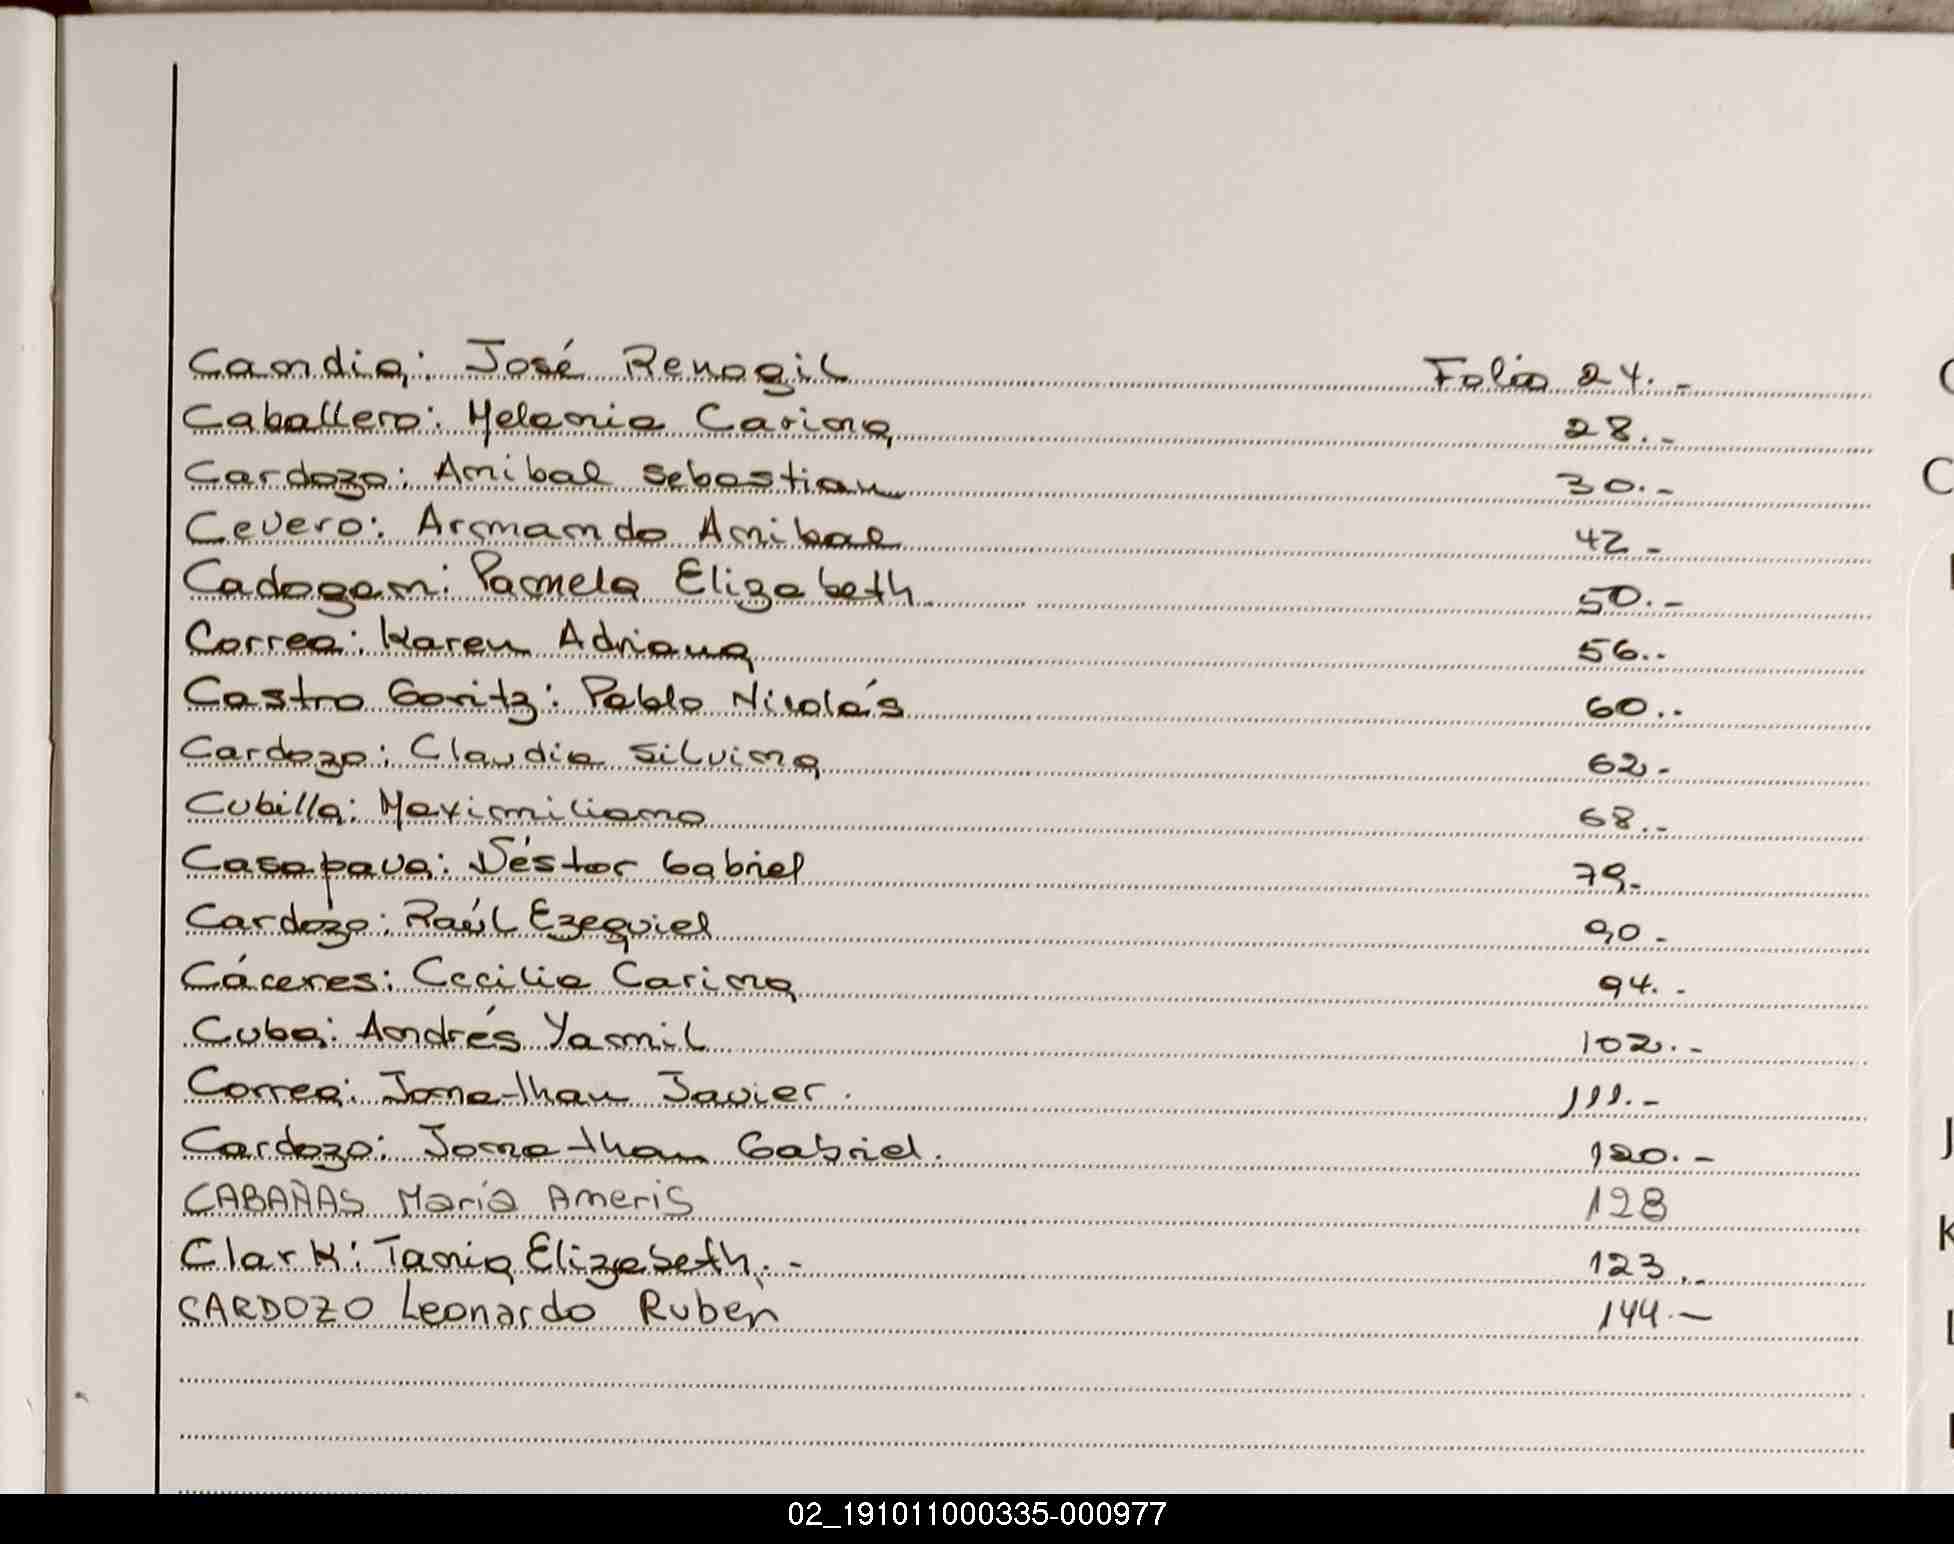 Candia: José Renagil Folio 24.-
Caballero: Melania Carina 28.-
Cardozo: Anibal Sebastian 30.-
Cevero: Armando Anibal 42-
Cadogan: Pamela Elizabeth 50.-
Correa: Karen Adriana 56..
Castro Goritz: Pablo Nicolás 60..
Cardozo: Claudia Silvina 62.-
Cubilla: Maximiliano 68.-
Casapava: Néstor Gabriel 79.-
Cardozo: Raúl Ezequiel 90-
Cáceres: Cecilia Carina 94.-
Cuba: Andrés Yamil 102.-
Correa: Jonathan Javier. 111.-
Cardozo: Jonathan Gabriel. 120.-
CABAÑAS María Ameris 128
Clark: Tania Elizabeth.- 123.-
CARDOZO Leonardo Ruben 144.-
C
C
J
K
L
02_191011000335-000977